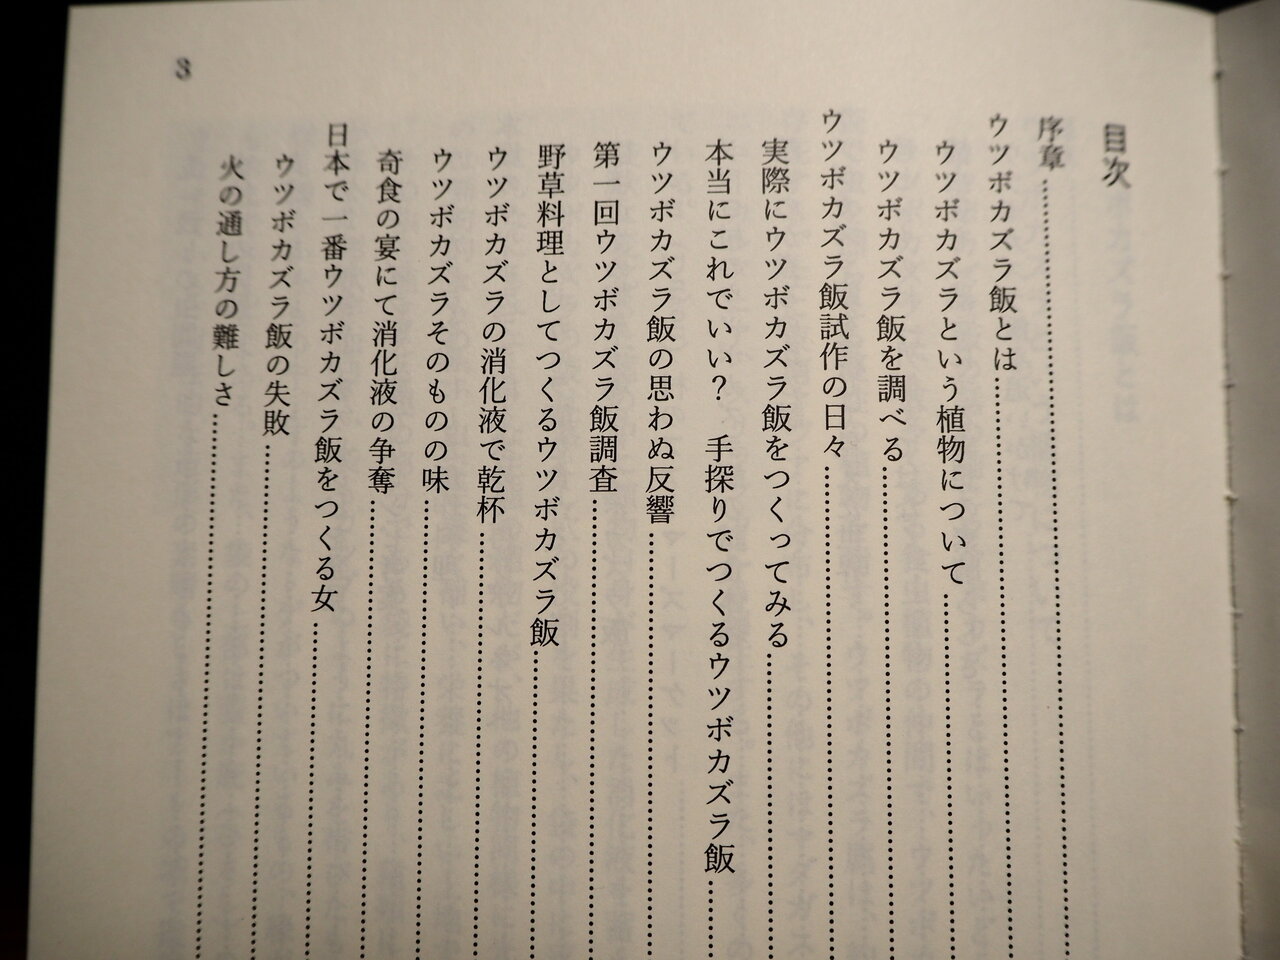 目次
序章
ウツボカズラ飯とは
ウツボカズラという植物について
ウツボカズラ飯を調べる
ウツボカズラ飯試作の日々
実際にウツボカズラ飯をつくってみる
本当にこれでいい？　手探りでつくるウツボカズラ飯
ウツボカズラ飯の思わぬ反響
第一回ウツボカズラ飯調査
野草料理としてつくるウツボカズラ飯
ウツボカズラの消化液で乾杯
ウツボカズラそのものの味
奇食の宴にて消化液の争奪
日本で一番ウツボカズラ飯をつくる女
ウツボカズラ飯の失敗
火の通し方の難しさ
3